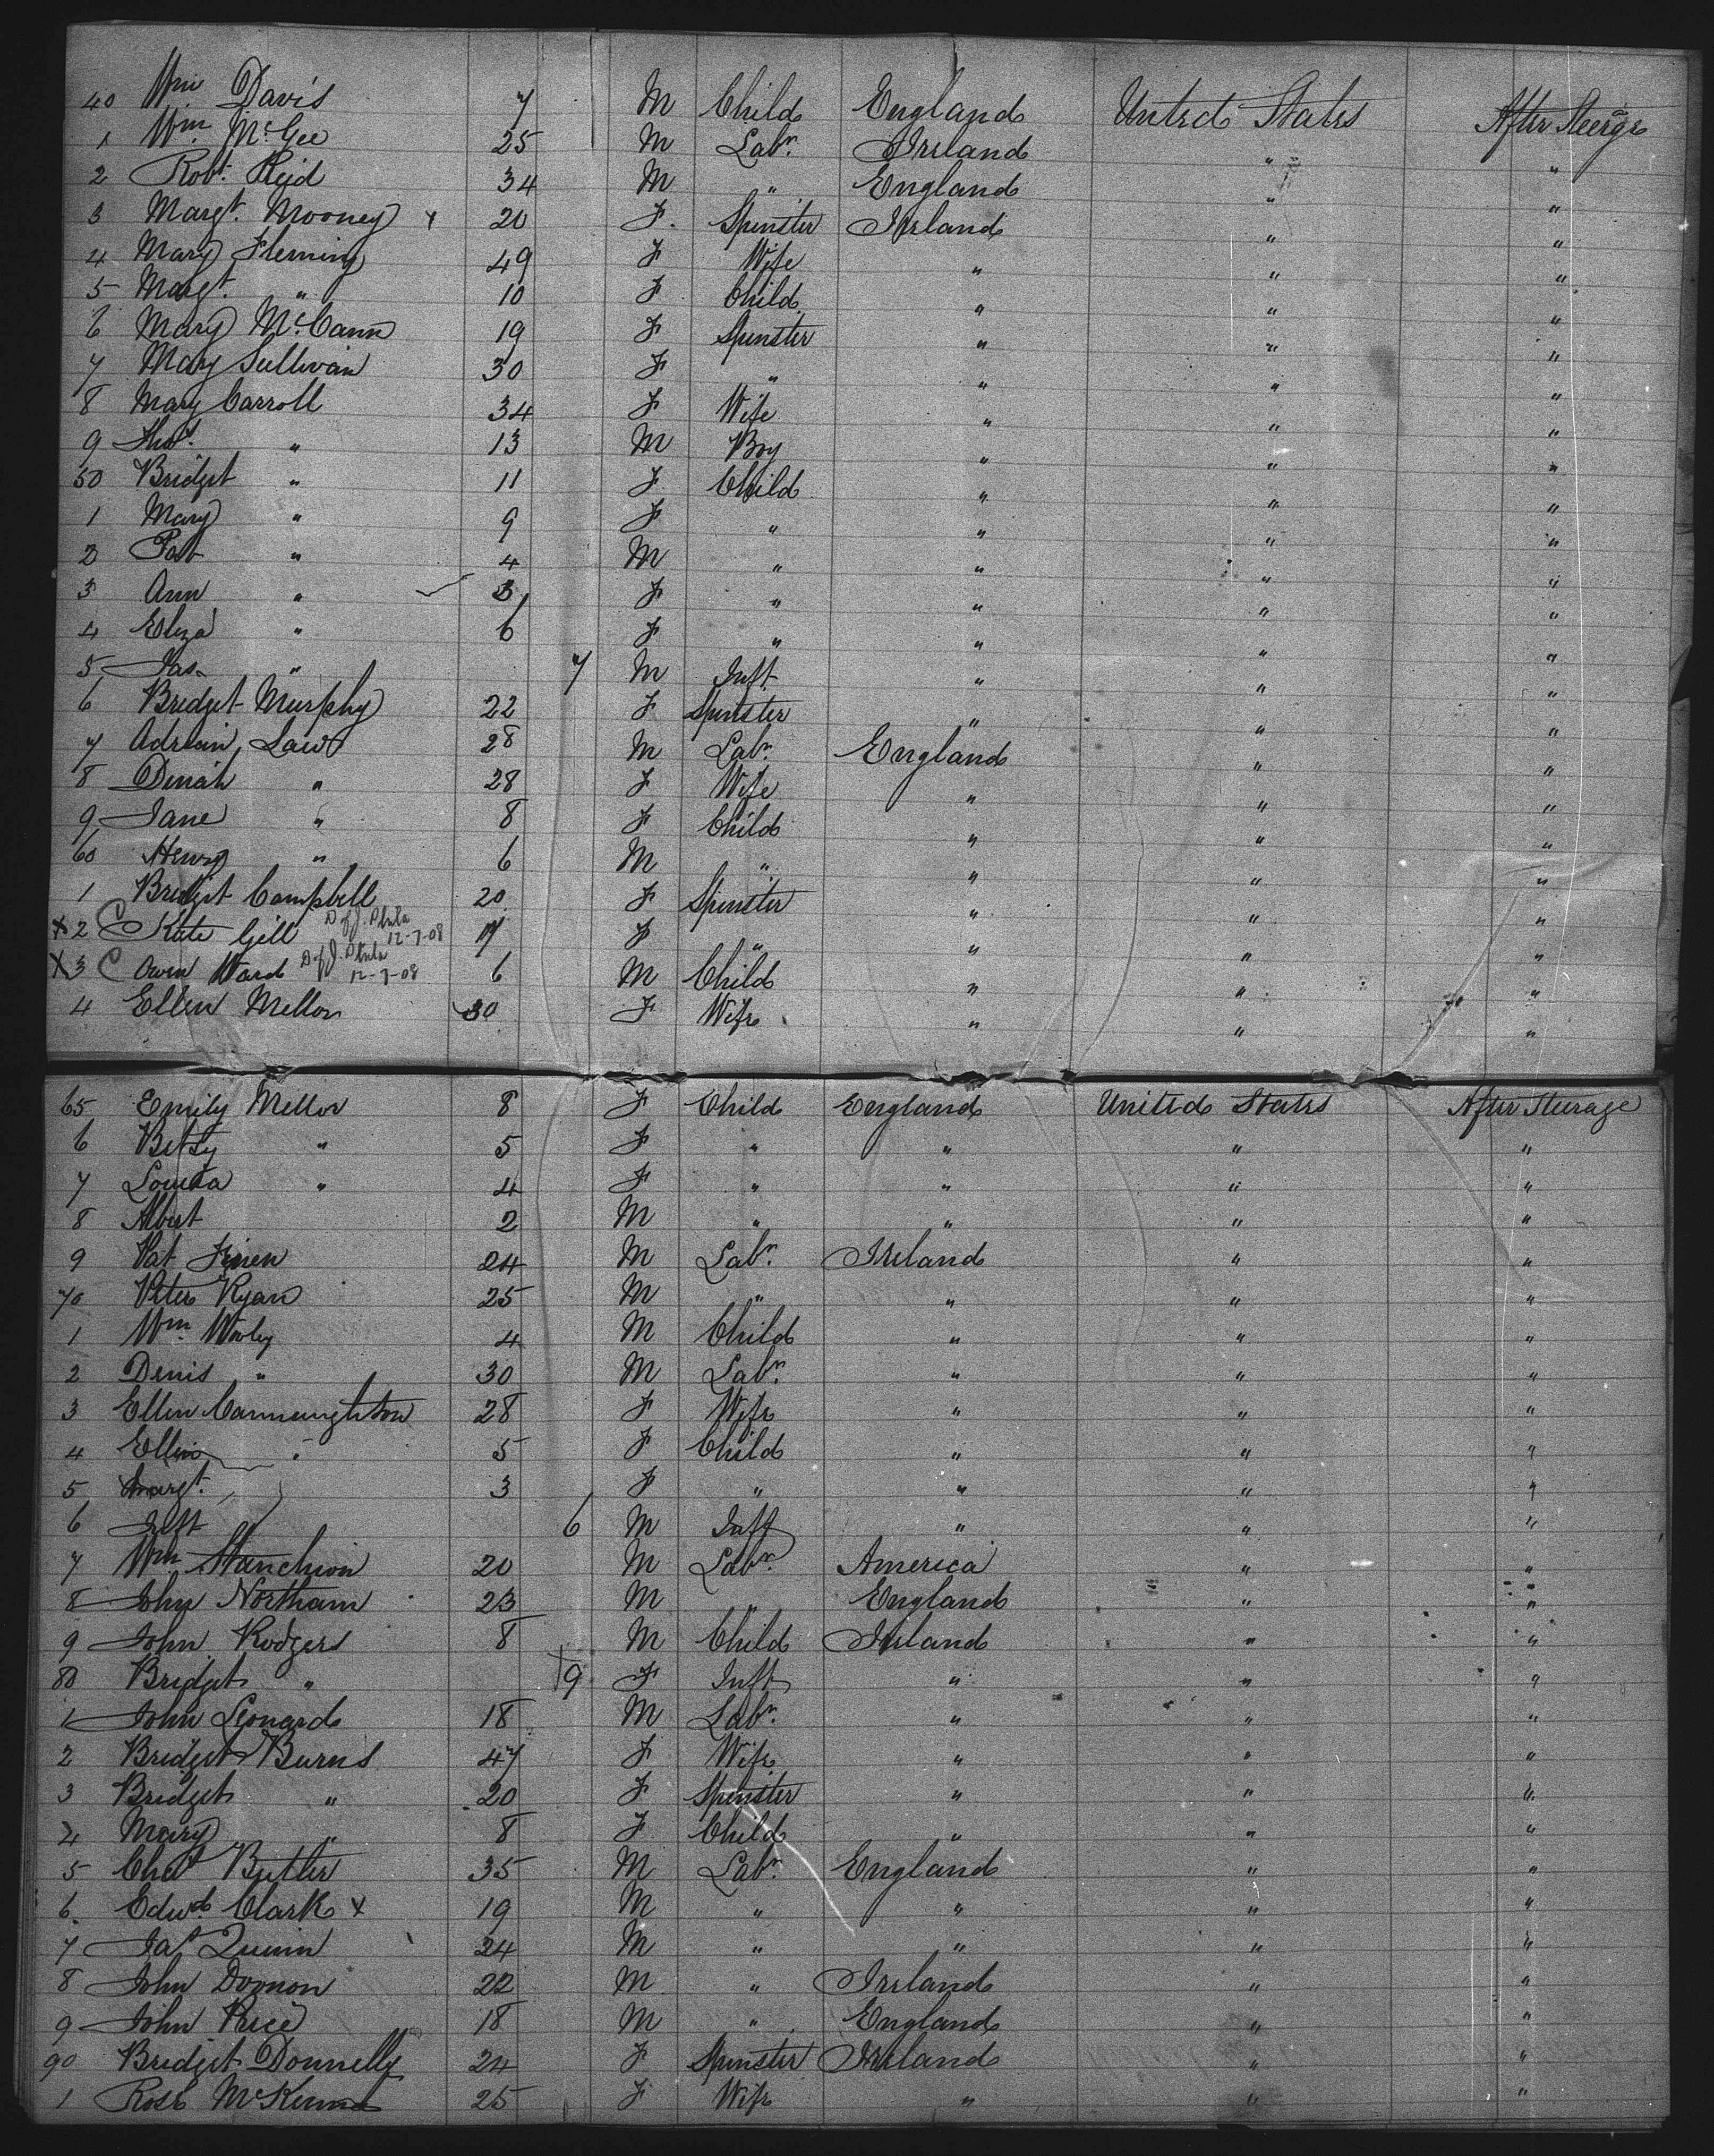 40 Wm Davis 7 M Child England United States After Steerge
1 Wm McGee 25 M Labr. Ireland " "
2 Robt. Reid 34 M " England " "
3 Margt. Mooney x 20 F. Spinster Ireland " "
4 Mary Fleming 49 F Wife " " "
5 Margt. " 10 F Child " " "
6 Mary McCann 19 F Spinster " " "
7 Mary Sullivan 30 F " " " "
8 Mary Carroll 34 F Wife " " "
9 Thos. " 13 M Boy " " "
50 Bridget " 11 F Child " " "
1 Mary " 9 F " " " "
2 Pat " 4 M " " " "
3 Ann " 3 F " " " "
4 Eliza " 6 F " " " "
5 Jas. " 7 M Inft. " " "
6 Bridget Murphy 22 F Spinster " " "
7 Adrian Law 28 M Labr. England " "
8 Dinah " 28 F Wife " " "
9 Jane " 8 F Child " " "
60 Henry " 6 M " " " "
1 Bridget Campbell 20 F Spinster " " "
x2 C Kate Gill D of J. Phila 12-7-08 F " " " "
x3 C Owen Ward D of J. Phila 12-7-08 6 M Child " " "
4 Ellen Mellor 30 F Wife " " "
65 Emily Mellor 8 F Child England United States After Steerage
6 Betsy " 5 F " " " "
7 Louisa " 4 F " " " "
8 Albert 2 M " " " "
9 Pat 24 M Labr. Ireland " "
70 Peter Ryan 25 M " " " "
1 Wm. 4 M Child " " "
2 Denis " 30 M Labr. " " "
3 Ellen Cannaughton 28 F Wife " " "
4 Ellen " 5 F Child " " "
5 Margt. " 3 F " " " "
6 Inft 6 M Inft " " "
7 Wm Stanchion 20 M Labr. America " "
8 John Northam 23 M " England " "
9 John Rodgers 8 M Child Ireland " "
80 Bridget " 9 F Inft " " "
1 John Leonard 18 M Labr. " " "
2 Bridget Burns 47 F Wife " " "
3 Bridget " 20 F Spinster " " "
4 Mary " 8 F Child " " "
5 Chas Butler 35 M Labr. England " "
6. Edwd. Clark x 19 M " " " "
7 Jas Quinn 24 M " " " "
8 John Doonon 22 M " Ireland " "
9 John Price 18 M " England " "
90 Bridget Donnelly 24 F Spinster Ireland " "
1 Rose McKenna 25 F Wife " " "